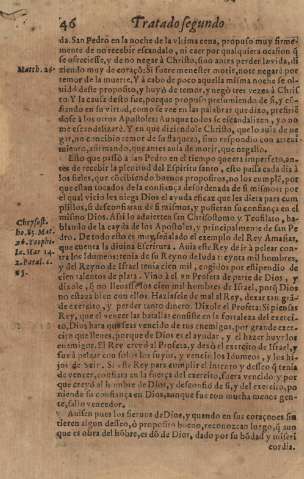 46 Tratado segundo
da. San Pedro en la noche de la vltima cena, propuso muy firme-
mente de no recebir escandalo, ni caer por qualquiera ocasion q̃
se ofreciesse, y de no negar à Christo, sino antes perder la vida, di
ziendo muy de coraçõ: Si fuere menester morir, note negarè por
temor de la muerte. Y à cabo de poco aquella misma noche se ol-
vidò deste proposito, y huyò de temor, y negò tres vezes à Chris
to Y la causa desto fue, porque propuso presumiendo de si, y cõ-
fiando en su virtud, como se vee en las palabras que dixo, prefiriẽ
dose à los otros Apostoles: Aunque todos se escandalizen, yo no
me escandalizarè. Y en que diziendole Christo, que lo auia de ne
gar, no conociò temor de su flaqueza, sino respondio con atreui
miento, afirmando, que antes auia de morir, que negallo.
Esto que passò à san Pedro en el tiempo que era imperfeto, an-
tes de recebir la plenitud del Espiritu santo, esto passa cada dia à
los fieles, que cõcibiendo buenos propositos, no los cumplẽ, por
que estan tocados de la confiança desordenada de si mismos: por
el qual vicio les niega Dios el ayuda eficaz que les diera para cum
plillos, si desconfiaran de si mismos, y pusieran su confiança en el
mismo Dios. Assi lo aduierten san Chrisostomo y Teofilao, ha-
blando de la cayda de los Apostoles, y principalmente de san Pe
dro. De todo esto ay muy señalado exemplo del Rey Amasias,
que cuenta la diuina Escritura. Auia este Rey de ir à pelear con-
tra los Idumeos: tenia de su Reyno de Iuda treynta mil hombres,
y del Reyno de Israel tenia cien mil, cogidos por estipendio de
cien talentos de plata. Vino à el vn Profeta de parte de Dios, y
dixole, q̃ no lleuasse los cien mil hombres de Israel, porq̃ Dios
no estaua bien con ellos. Haziasele de mal al Rey, dexar tan grã-
de exercito, y perder tanto dinero. Dixole el Profeta: Si piensas
Rey, que el vencer las batallas consiste en la fortaleza del exerci-
to, Dios hara que seas vencido de tus enemigos, por grande exer-
cito que lleues, porque de Dios es el ayudar, y el hazer huyr los
enemigos. El Rey creyò al Profeta, y dexò el exercito de Israel, y
fue à pelear con solos los suyos, y venció los Idumeos, y los hi-
jos de Seir. Si este Rey para cumplir el intento y desseo q̃ tenia
de vencer, confiara en la fuerça del exercito, fuera vencido: y por
que creyò al hombre de Dios, y desconfiò de si, y del exercito, po
niendo su confiança en Dios, aunque fue con mucha menos gen-
te, salio vencedor.
Auisen pues los sieruos de Dios, y quando en sus coraçones sin
tieren algun desseo, ò proposito bueno, reconozcan luego, q̃ aun
que es obra del hõbre, es dõ de Dios, dado por su bõdad y miseri
cordia.
Matth. 26.
Chrysost.
ho. 83. Mat.
26. Teophi-
la. Mar 14.
2. Paral. 2
5.